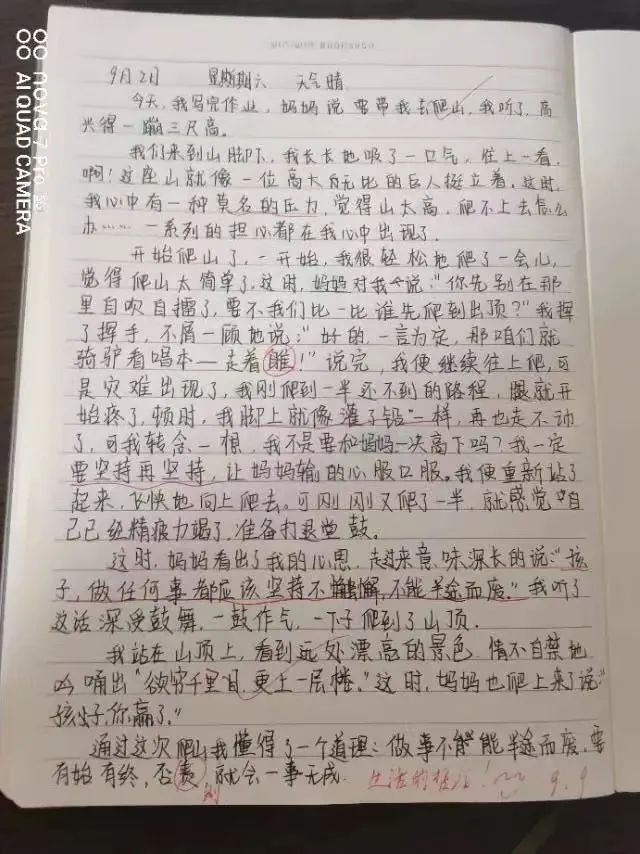 9月2日 星期六 天气晴
今天,我写完作业,妈妈说要带我去爬山,我听了,高
兴得一蹦三尺高。
我们来到山脚下,我长长地吸了一口气,往上一看,
啊!这座山就像一位高大无比的巨人挺立着。这时,
我心中有一种莫名的压力,觉得山太高,爬不上去怎么
办……一系列的担心都在我心中出现了。
开始爬山了,一开始,我很轻松地爬了一会儿,
觉得爬山太简单了。这时,妈妈对我说:"你先别在那
里自吹自擂了,要不我们比一比谁先爬到出顶?"我挥
了挥手,不屑一顾地说:"好的,一言为定,那咱们就
骑驴看唱本—走着瞧!"说完,我便继续往上爬,可
是灾难出现了,我刚爬到一半还不到的路程,腿就开
始疼了,顿时,我脚上就像灌了铅一样,再也走不动
了,可我转念一想,我不是要和妈妈一决高下吗?我一定
要坚持再坚持,让妈妈输的心服口服。我便重新站了
起来,飞快地向上爬去。可刚刚又爬了一半,就感觉自
己已经精疲力竭了,准备打退堂鼓。
这时,妈妈看出了我的心思,走过来意味深长的说:"孩
子,做任何事都应该坚持不懈,不能半途而废。"我听了
这话深受鼓舞,一鼓作气,一下子爬到了山顶。
我站在山顶上,看到远处漂亮的景色,情不自禁地
吟诵出"欲穷千里目,更上一层楼。"这时,妈妈也爬上来了说:"
孩子,你赢了。"
通过这次爬山我懂得了一个道理:做事不能半途而废,要
有始有终,否责,就会一事无成.
则
9.9
AI QUAD CAMERA
nova 7 Pro